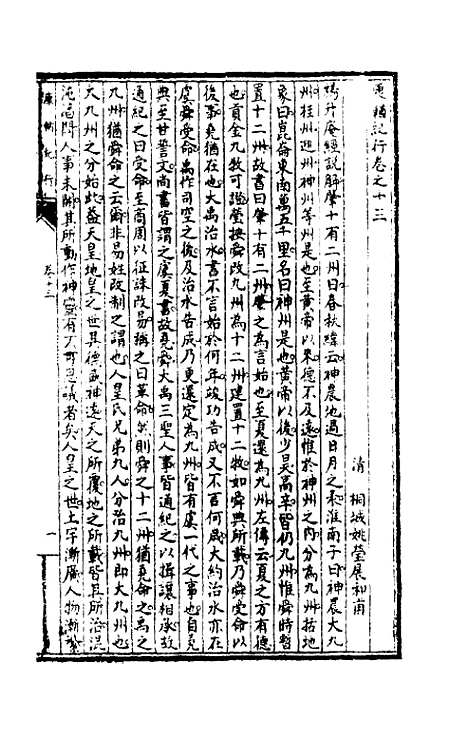 康輶紀行卷之十三
清 桐城姚瑩展和甫
馮升庵經說解肇十有二州曰春秋緯云神農地過日月之表淮南子曰神農大九
州桂州迎州神州等州是也至黃帝以來德不及遠惟於神州之內分為九州括地
象曰崑崙東南萬五千里名曰神州是也黃帝以後少昊高辛皆仍九州惟舜時暫
置十二州故書曰肇十有二州肇之為言始也至夏還為九州左傳云夏之方有德
也貢金九牧可證瑩按舜改九州為十二州建置十二牧如舜典所載乃舜受命以
後事堯猶在也大禹治水書不言始於何年竣功告成又不言何歲大約治水亦在
虞舜受命為帝之後及治水告成乃更還定為九州皆有虞一代之事也自堯
典至甘誓文尚書皆謂之虞夏書故堯舜大禹三聖人事皆通紀之以揖讓相承故
通紀之曰受命至商周以征誅改易稱之曰革命然則舜之十二州猶堯命之禹之
九州猶舜命之云爾非易姓改制之謂也人皇氏兄弟九人分治九州即大九州也
大九州之分始此蓋天皇地皇之世其德

神遠天之所覆地之所載皆其所治混
沌屯蒙人事未開其所動作神靈有不可思議者矣人皇之世土宇漸廣人物漸繁
康輶紀行
卷十三
一